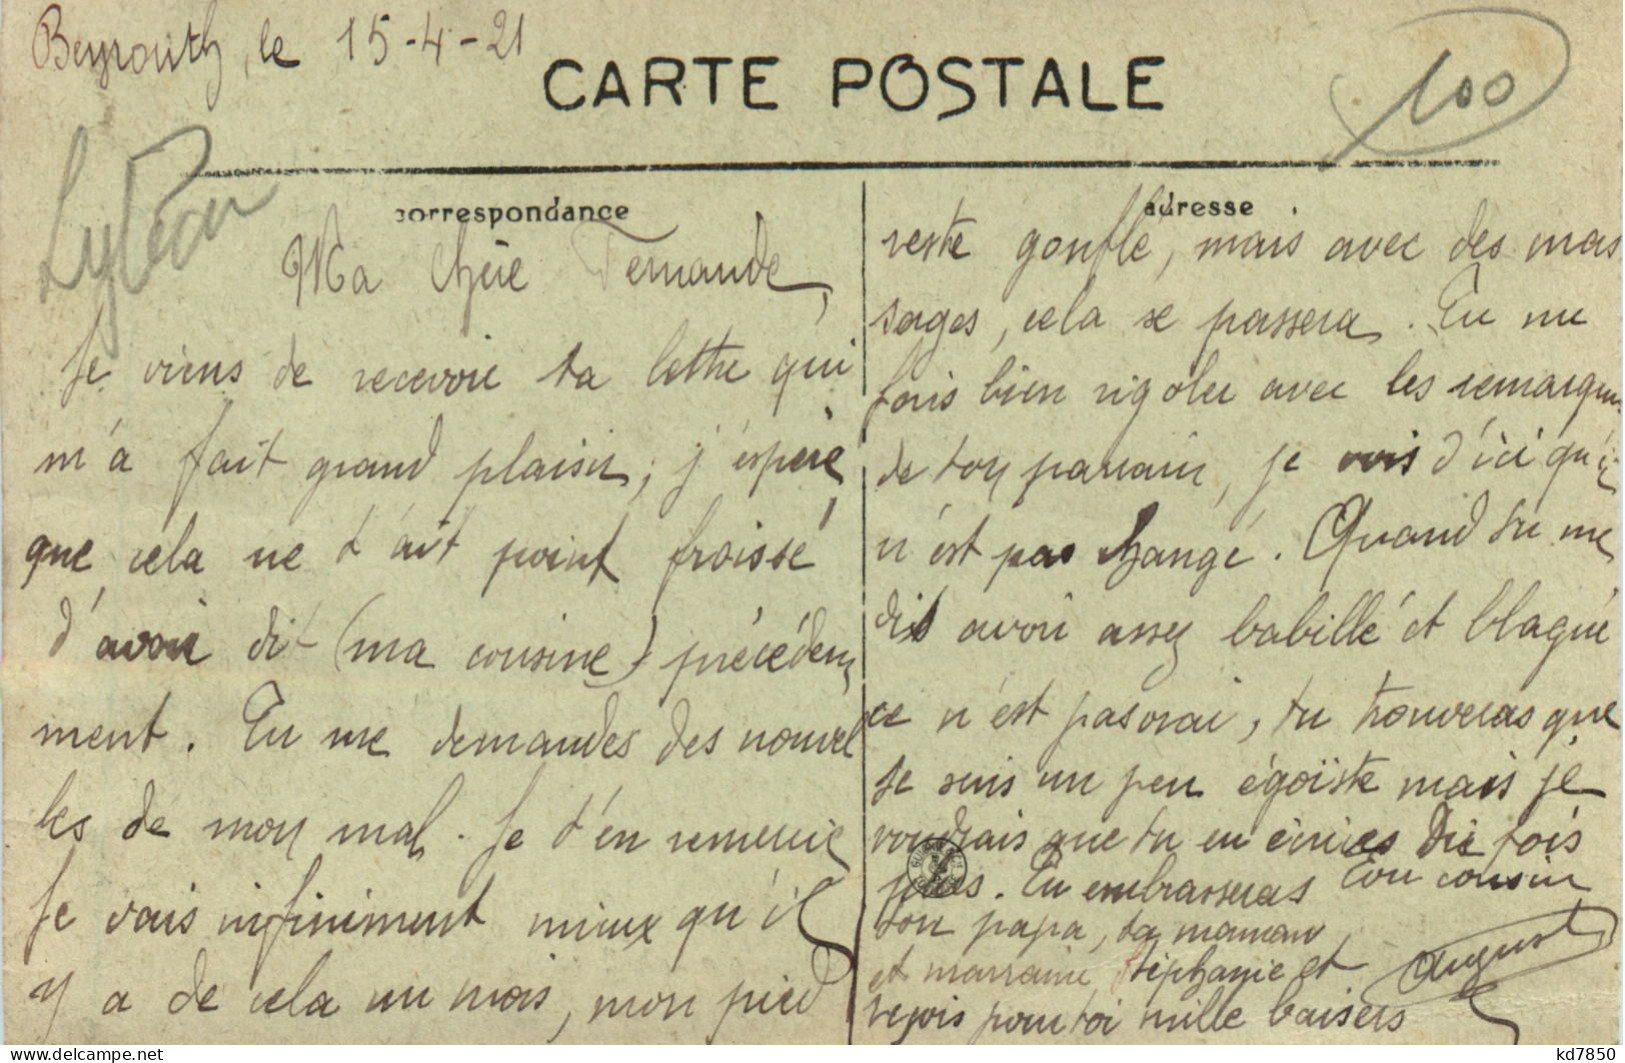 Beyrouth, le 15-4-21
CARTE POSTALE
100
correspondance
Ma Chère Fernande,
Je viens de recevoir ta lettre qui
m'a fait grand plaisir, j'espère
que cela ne t'ait point froissé
d'avoir dit (ma cousine) précédem
ment. Tu me demandes des nouvel
les de mon mal. Je t'en remercie
Je vais infiniment mieux qu'il
y a de cela un mois, mon pied
adresse
reste gonflé, mais avec des mas
sages, cela se passera. Tu me
fais bien rigoler avec les remarques
de ton parrain, je vois d'ici qu'il
n'est pas changé. Quand tu me
dis avoir assez babillé et blagué
ce n'est pas vrai, tu trouveras que
je suis un peu égoïste mais je
voudrais que tu en écrives dix fois
plus. Tu embrasseras
ton papa, ta maman
et marraine Stéphanie et
reçois pour toi mille baisers
Ton cousin
August
kd7850